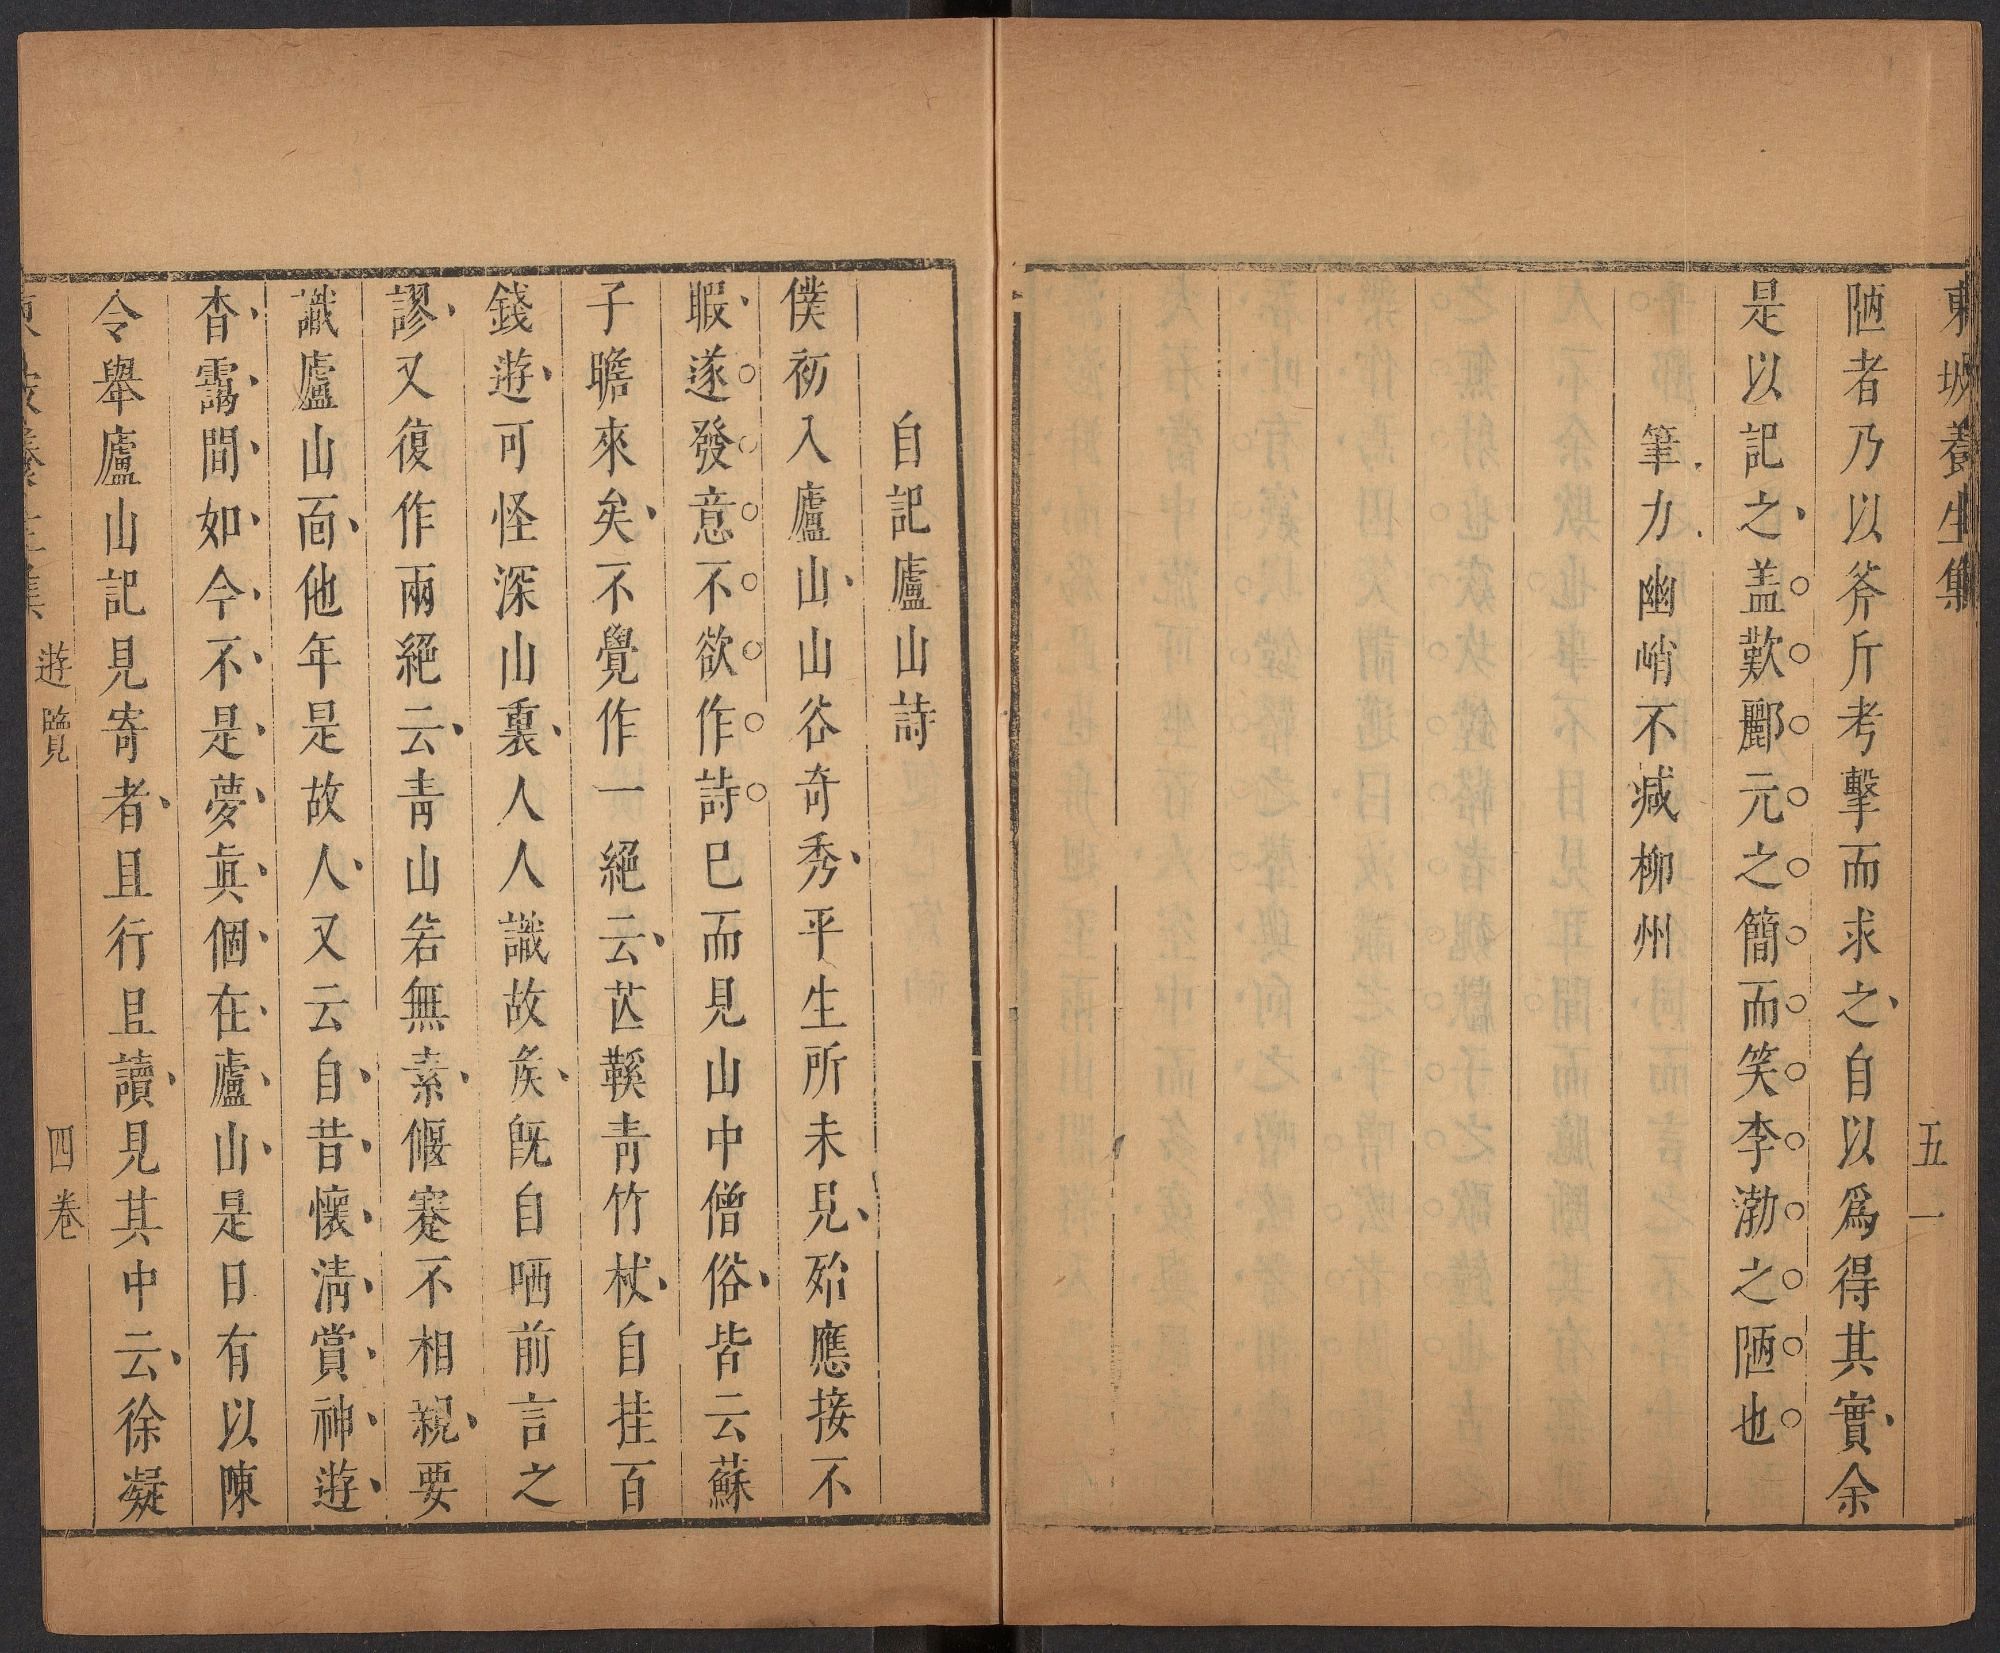 東坡養生集
五一
陋者乃以斧斤考擊而求之自以爲得其實余
是以記之盖歎酈元之簡而笑李渤之陋也
筆力幽峭不減柳州
自記廬山詩
僕初入廬山山谷奇秀平生所未見殆應接不
暇遂發意不欲作詩已而見山中僧俗皆云蘇
子瞻來矣不覺作一絕云芒鞵青竹杖自挂百
錢遊可怪深山裏人人識故矦旣自哂前言之
謬又復作兩絕云青山若無素偃蹇不相親要
識廬山面他年是故人又云自昔懷清賞神遊
杳靄間如今不是夢真個在廬山是日有以陳
令舉廬山記見寄者且行且讀見其中云徐凝
東坡養生集 遊覽 四卷